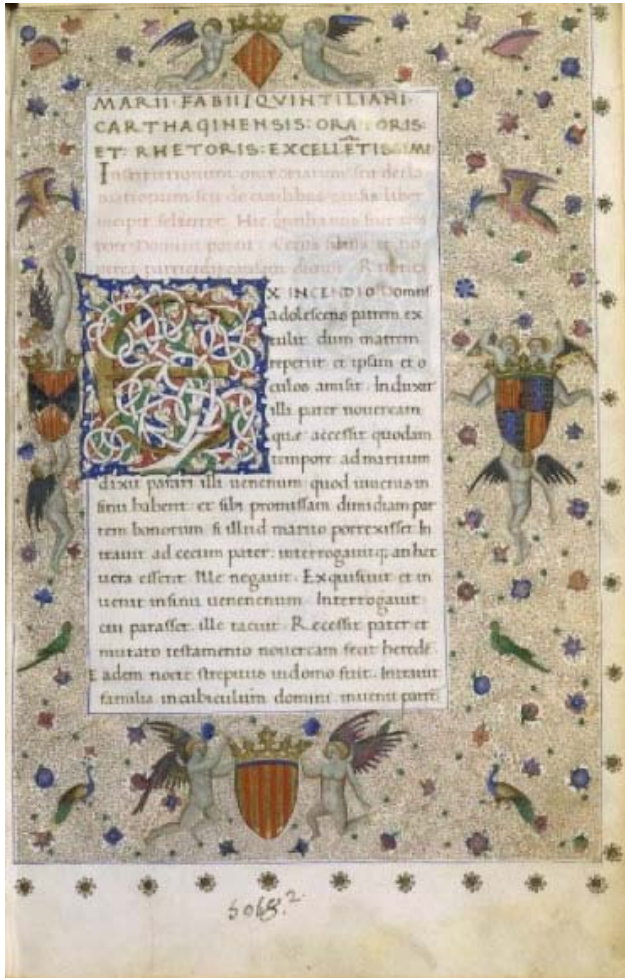 MARII·FABII/QVINTILIANI·
CARTHAGINENSIS: ORATORIS·
ET·RHETORIS·EXCELLẼTISSIMI
Institutionum oratoriarum seu decla
mationum seu de civilibus causis liber
incipit feliciter.
X INCENDIO Domus
adolescens patrem ex
tulit dum matrem
reperiit et ipsum et o
culos amisit. Induxit
illi pater novercam
quae accessit quodam
tempore ad maritum
dixit parari illi uenenum quod iuuenis in
sinu haberet et sibi promissam dimidiam par
tem bonorum si illud marito porrexisset In
trauit ad cecum pater: interrogauitq; an hec
uera essent. Ille negauit. Exquisiuit et in
uenit in sinu uenenenum Interrogauit:
cui parasset. ille tacuit. Recessit pater et
mutato testamento nouercam fecit heredē.
Eadem nocte strepitus in domo fuit. Intrauit
familia in cubiculum domini inuenit
5068.2